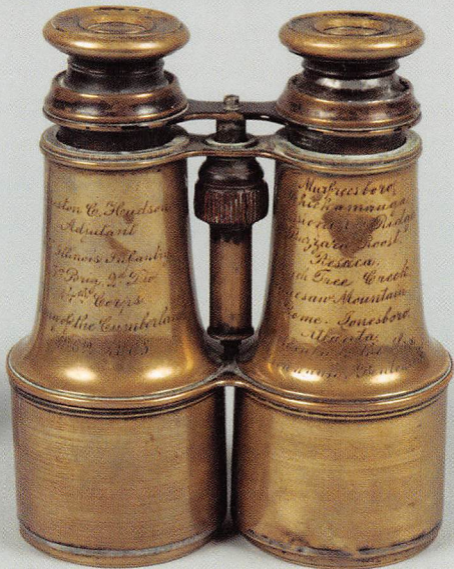 eston C. Hudson
Adjutant
Illinois Infantry
Brig. 2d Div.
Corps
y of the Cumberland
1865
Murfreesboro,
hickamauga
ssionary Ridge
Buzzard Roost,
Resaca,
ch Tree Creek
nesaw Mountain
ome. Jonesboro,
Atlanta,